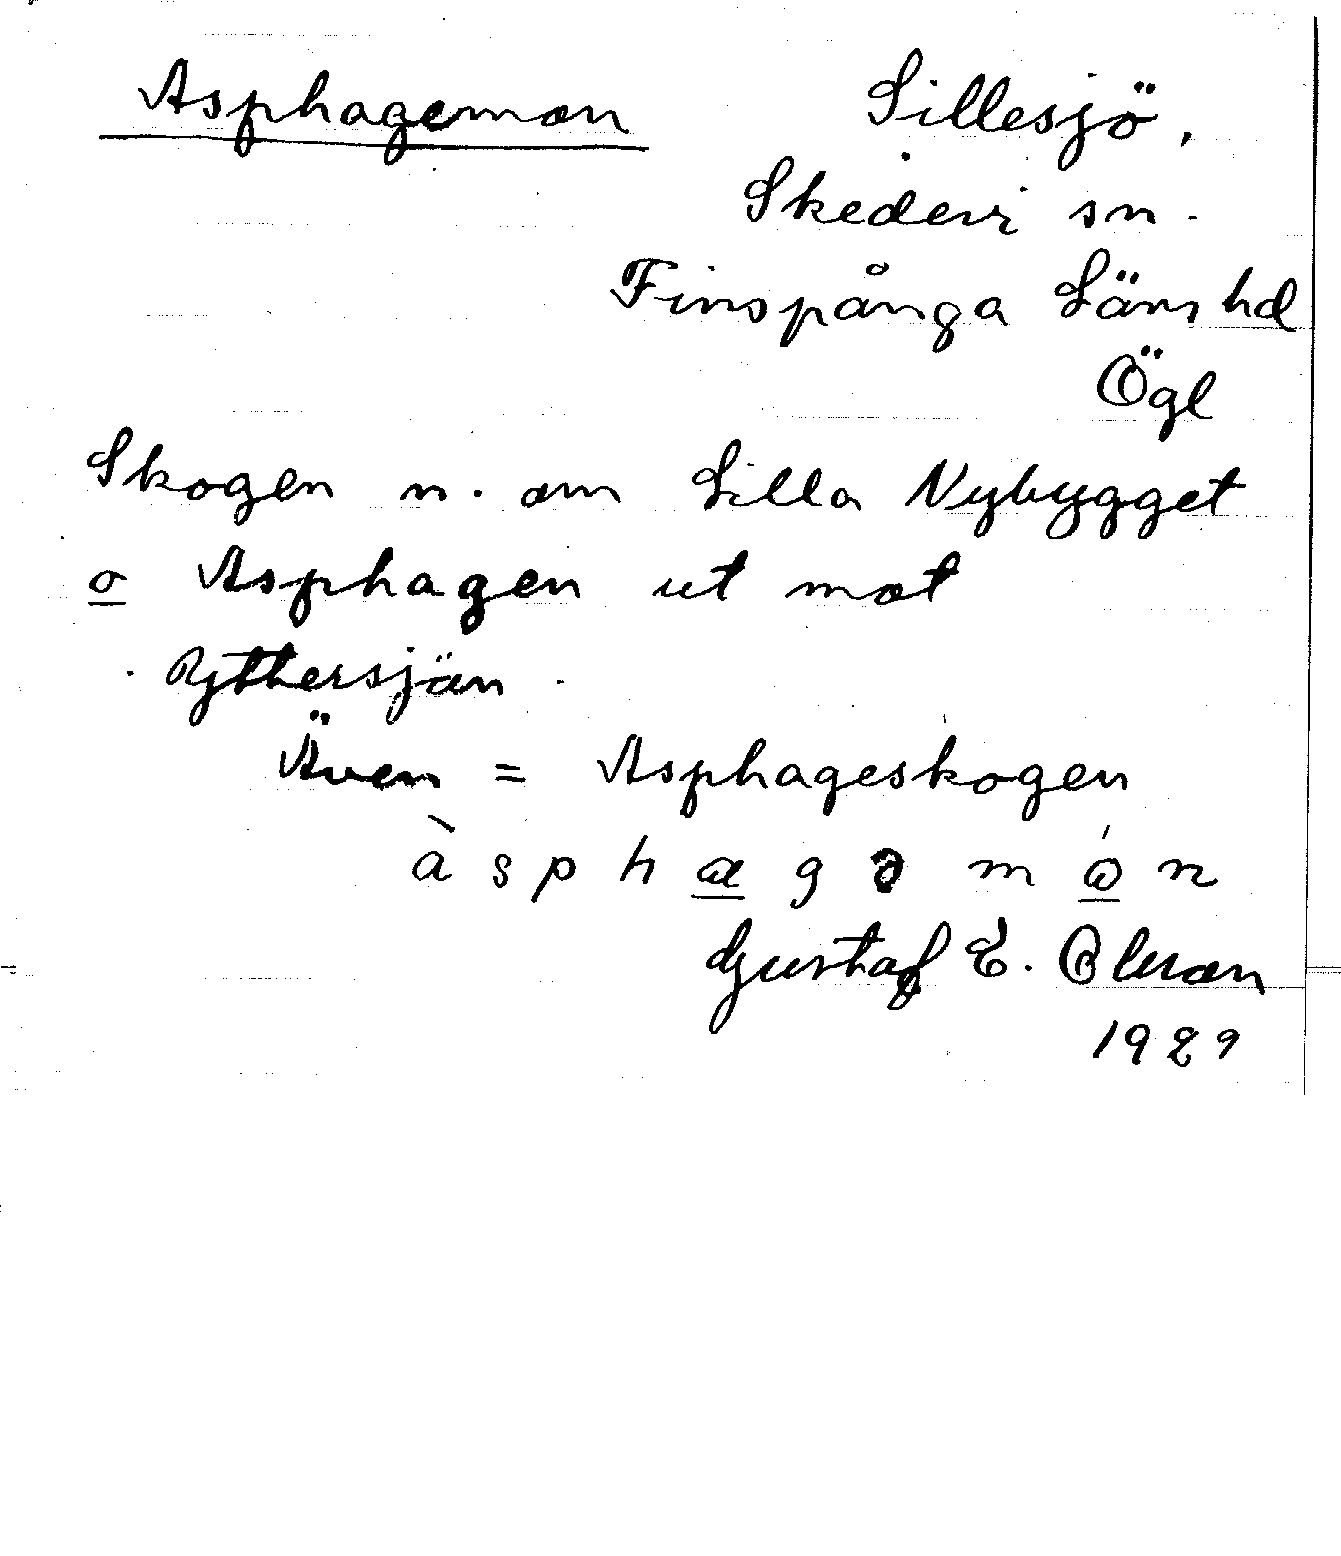 Asphagemon Lillesjö,
Skedevi sn.
Finspånga Läns hd
Ögl
Skogen n. om Lilla Nybygget
o Asphagen ut mot
Ryttersjön.
Även = Asphageskogen
àsphagəmón
Gustaf E. Olson
1929